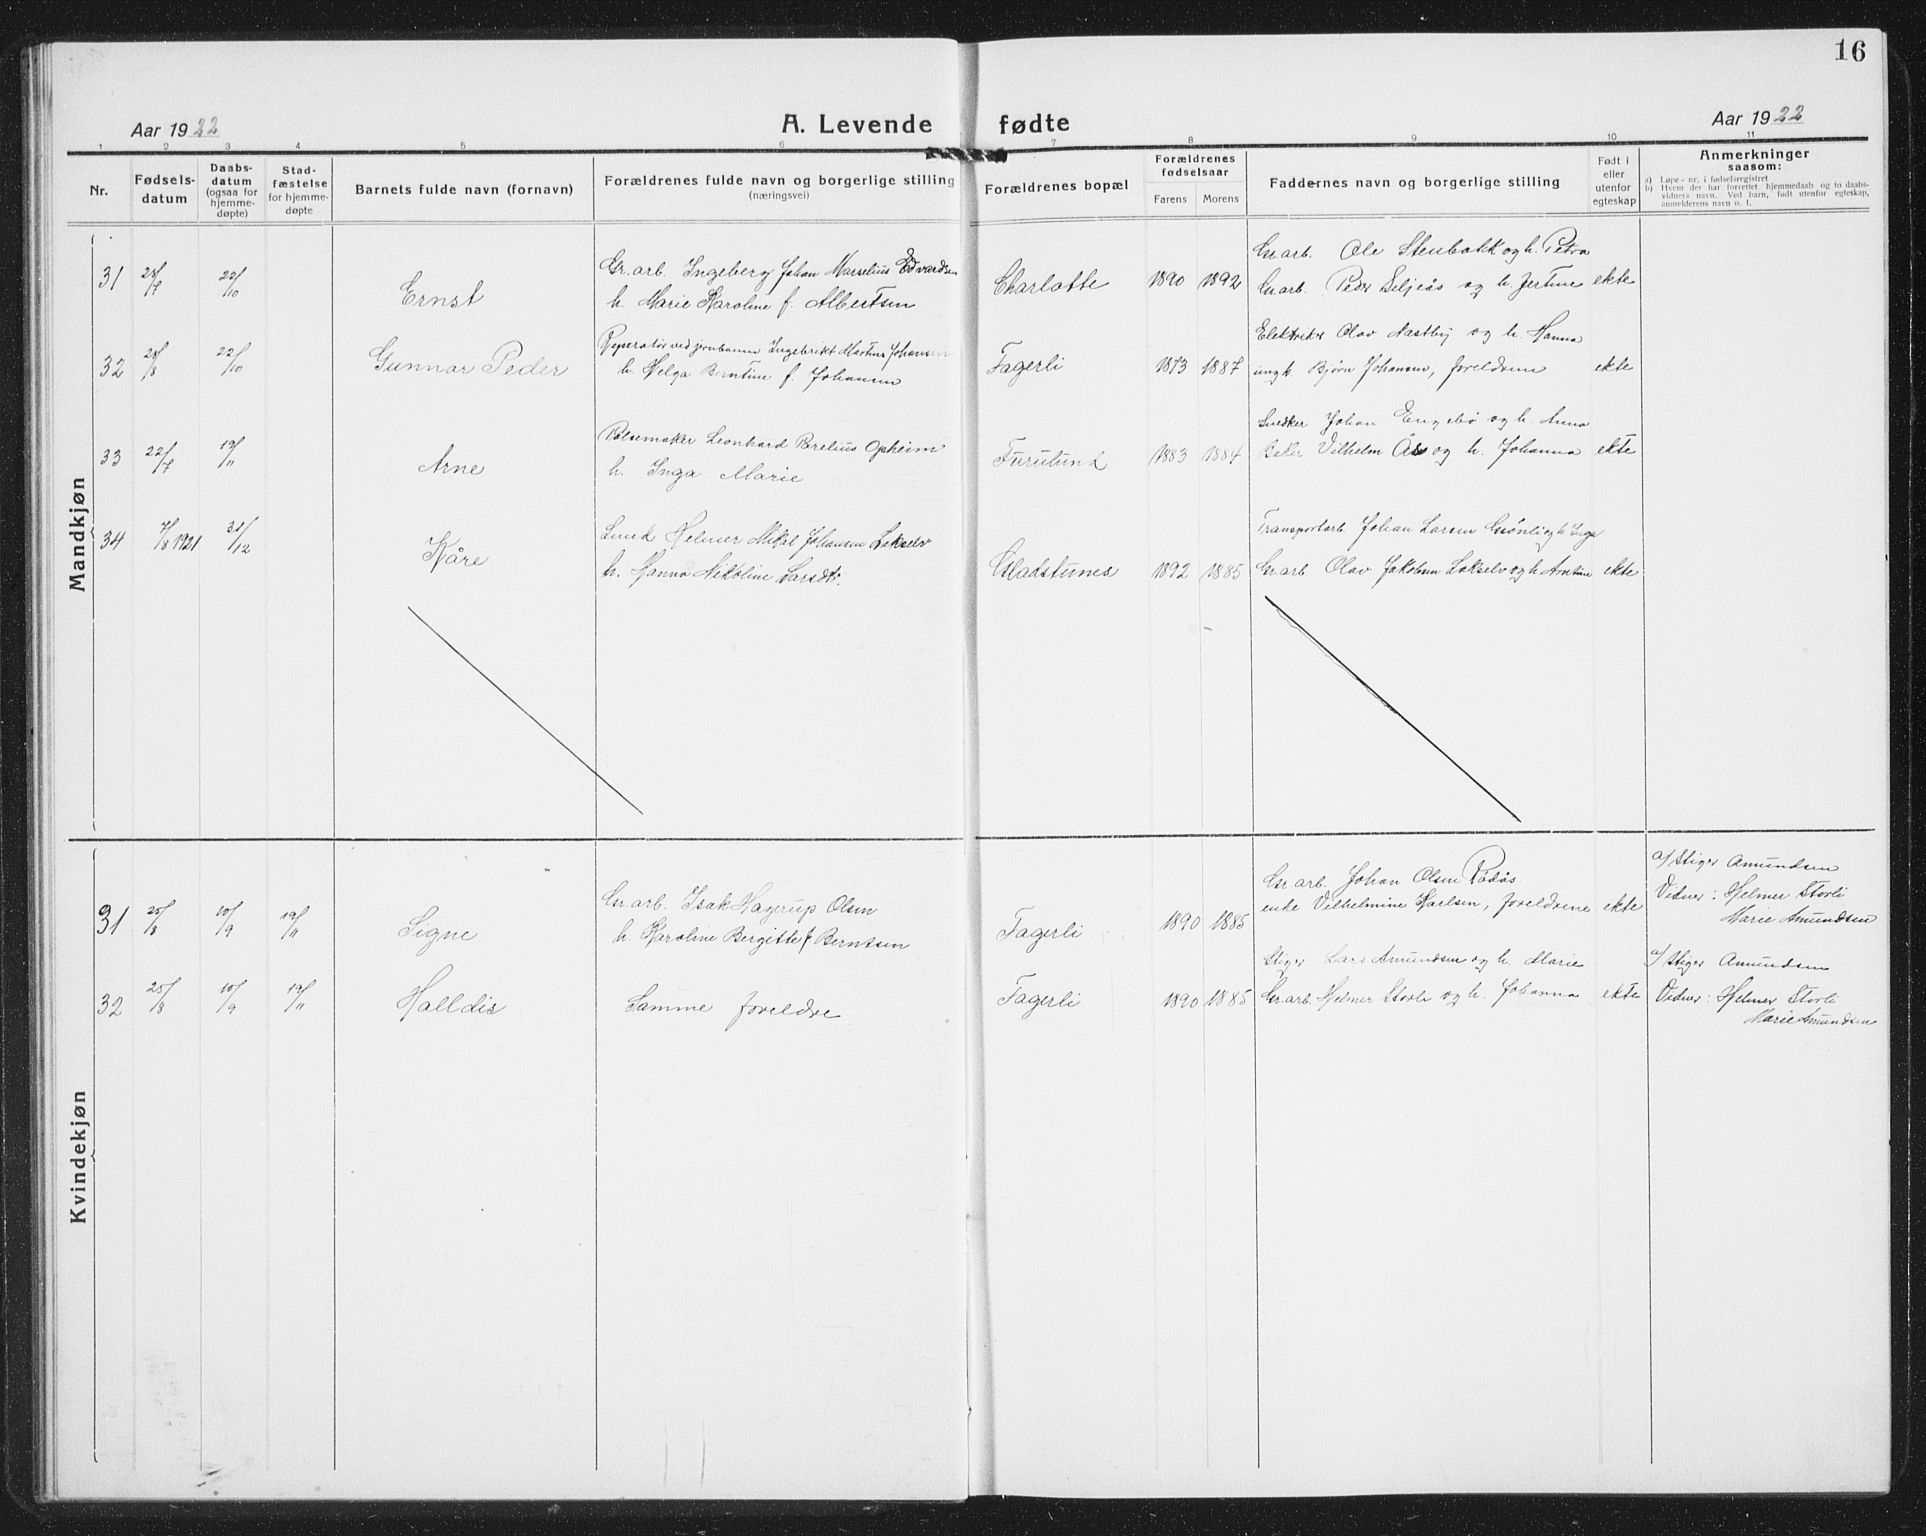 16
Aar 1922
A. Levende fødte
Aar 1922
1 2 3 4 5 6 7 8 9 10 11
Nr.
Fødsels-
datum
Daabs-
datum
(ogsaa for
hjemme-
døpte)
Stad-
fæstelse
for hjemme-
døpte
Barnets fulde navn (fornavn)
Forældrenes fulde navn og borgerlige stilling
(næringsvei)
Forældrenes bopæl
Forældrenes
fødselsaar
Farens Morens
Faddernes navn og borgerlige stilling
Født i
eller
utenfor
egteskap
Anmerkninger
saasom:
a) Løpe-nr. i fødselsregistret
b) Hvem der har forrettet hjemmedaab og to daabs-
vidners navn. Ved barn, født utenfor egteskap,
anmelderens navn o. l.
Mandkjøn
31 28/7 22/10 Ernst
Gr. arb. Ingeberg Johan Marselius Edvardsen
h. Marie Karoline f. Albertsen
Charlotte 1890 1892
Gr. arb. Ole Stenbakk og h. Petra
Gr. arb. Peder Seljeås og h. Jertine ekte
32 28/8 22/10 Gunnar Peder
Reperatør ved jernbanen Ingebrikt Martus Johansen
h. Helga Berntine f. Johansen
Fagerli 1873 1887
Elektriker Olav Nastby og h. Hanna
ungk. Bjørn Johansen, foreldrene ekte
33 22/7 19/11 Arne
Pølsemaker Leonhard Parelius Opheim
h. Inga Marie
Furulund 1883 1884
Snedker Johan Engebø og h. Anna
Baker Vilhelm Ås og h. Johanna ekte
34 7/8 1921 31/12 Kåre
Smed Helmer Mikal Johansen Lakselv
h. Hanna Nikoline Larsdt.
Gladstunes 1892 1885
Transportarb Johan Larsen Grønli og h Inga
Gr. arb Olav Jakobsen Lakselv og h Arntine ekte
Kvindekjøn
31 25/8 10/9 19/11 Signe
Gr. arb. Isak Hagerup Olsen
h. Karoline Bergitte f Berntsen
Fagerli 1890 1885
Gr. arb. Johan Olsen Rødås
enke Vilhelmine Karlsen, foreldrene ekte
a/ Stiger Amundsen
Vidner: Helmer Storli
Marie Amundsen
32 25/8 10/9 19/11 Halldis
Samme foreldre
Fagerli 1890 1885
Stiger Lars Amundsen og h. Marie
Gr. arb. Helmer Storli og h. Johanna ekte
a/ Stiger Amundsen
Vidner: Helmer Storli
Marie Amundsen